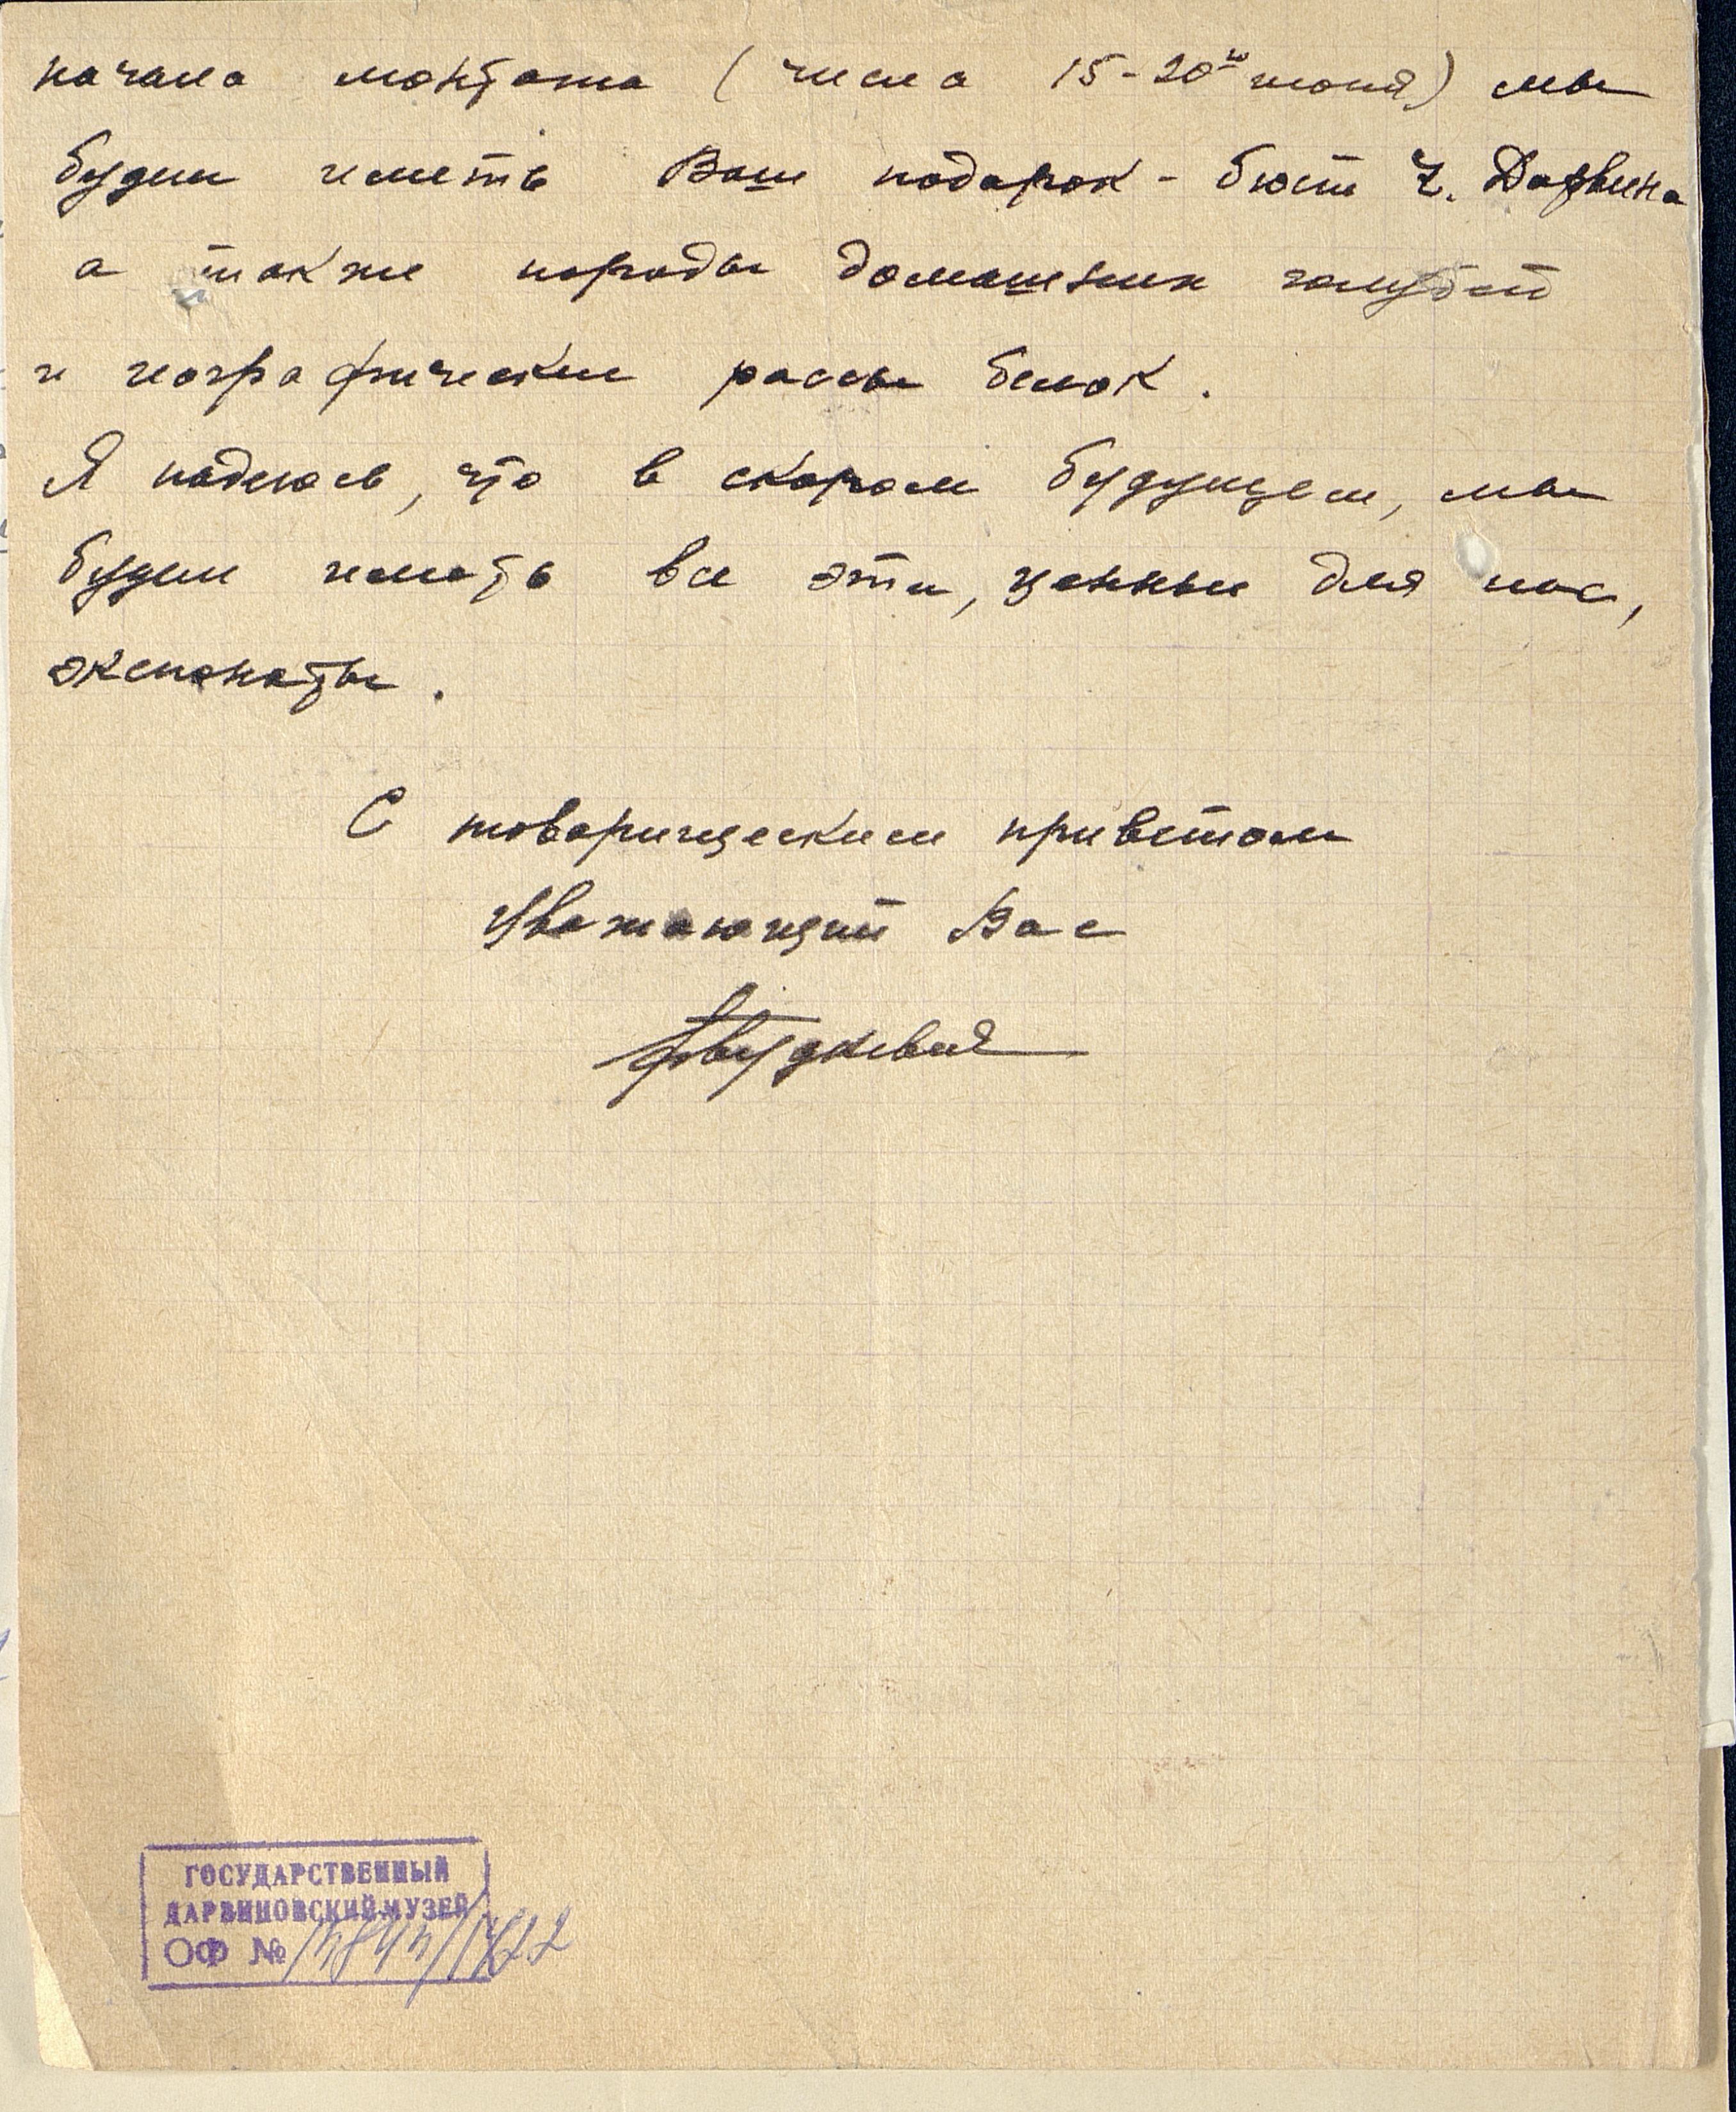 начала монтажа (числа 15-20го июня) мы
будем иметь Ваш подарок - бюст Ч. Дарвина
а также породы домашних голубей
и географические рассы белок.
Я надеюсь, что в скором будущем, мы
будем иметь все эти, ценные для нас,
экспонаты.
С товарищеским приветом
Уважающий Вас
ГОСУДАРСТВЕННЫЙ
ДАРВИНОВСКИЙ МУЗЕЙ
ОФ №